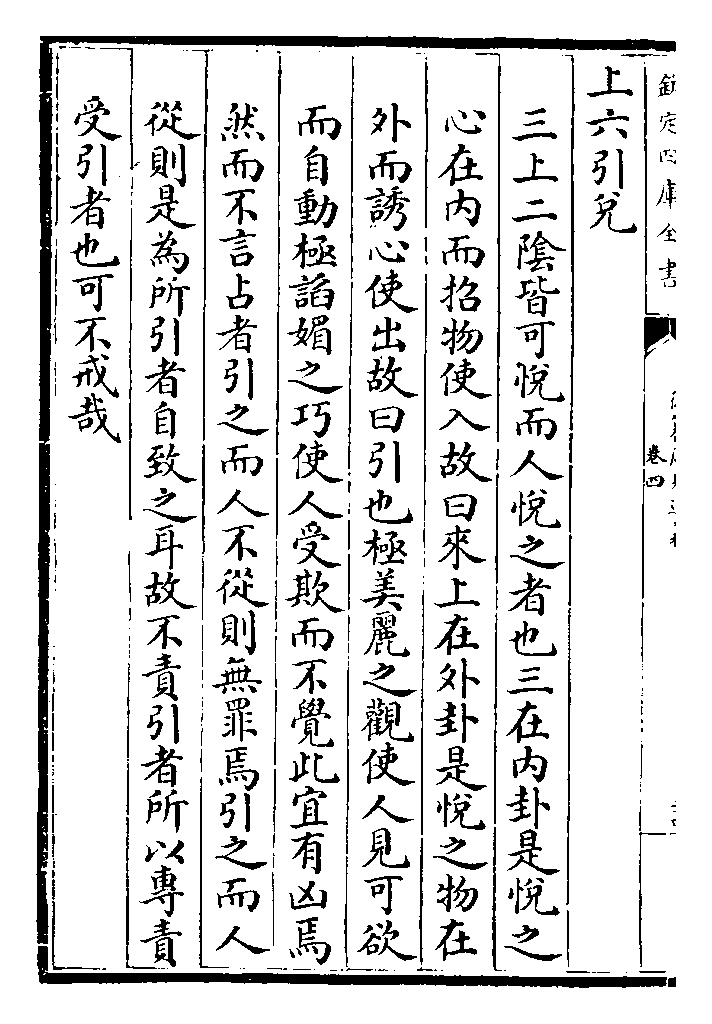 欽定四庫全書
卷四
上六引兌
三上二陰皆可悅而人悅之者也三在内卦是悅之
心在内而招物使入故曰來上在外卦是悅之物在
外而誘心使出故曰引也極美麗之觀使人見可欲
而自動極諂媚之巧使人受欺而不覺此宜有凶焉
然而不言占者引之而人不從則無罪焉引之而人
從則是為所引者自致之耳故不責引者所以專責
受引者也可不戒哉